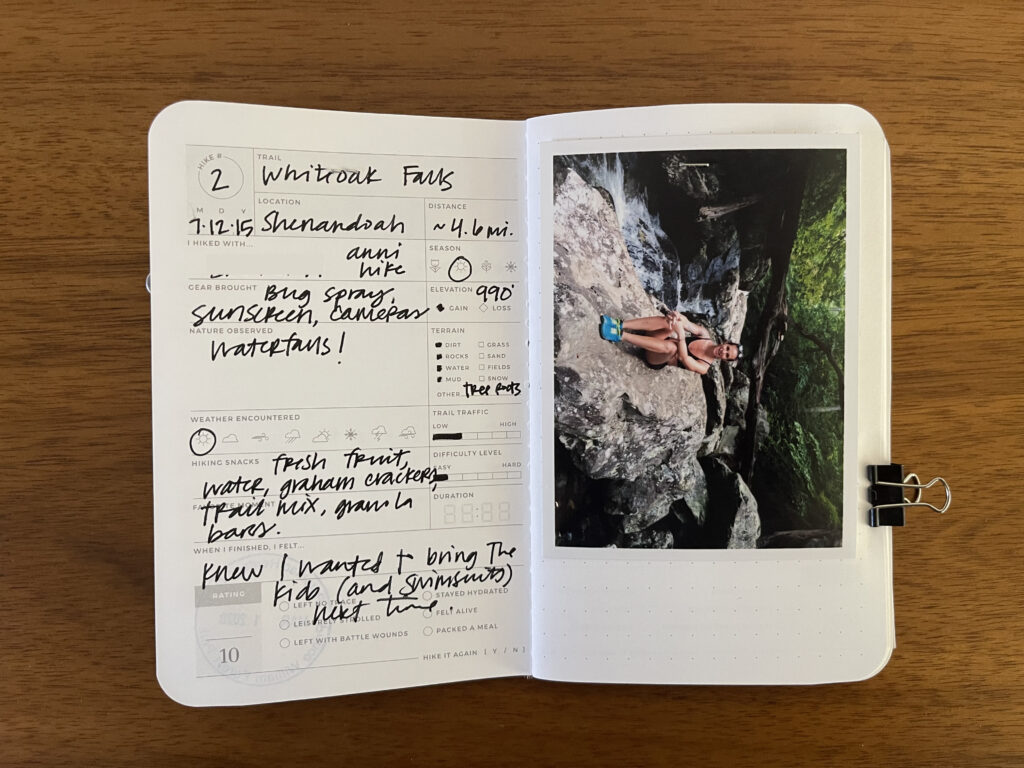 HIKE #
2
TRAIL
Whiteoak Falls
M D Y
7.12.15
LOCATION
Shenandoah
DISTANCE
~4.6 mi.
I HIKED WITH...
anni
hike
SEASON
GEAR BROUGHT
Bug spray,
sunscreen, cameras
ELEVATION 990'
GAIN LOSS
NATURE OBSERVED
Waterfalls!
TERRAIN
DIRT GRASS
ROCKS SAND
WATER FIELDS
MUD SNOW
OTHER tree roots
WEATHER ENCOUNTERED
TRAIL TRAFFIC
LOW HIGH
HIKING SNACKS fresh fruit,
water, graham crackers,
trail mix, granola
bars.
DIFFICULTY LEVEL
EASY HARD
DURATION
WHEN I FINISHED, I FELT...
Knew I wanted t bring the
kids (and swimsuits)
next time.
RATING
10
LEFT NO TRACE
LEISURELY STROLLED
LEFT WITH BATTLE WOUNDS
STAYED HYDRATED
FELT ALIVE
PACKED A MEAL
HIKE IT AGAIN [ Y / N ]